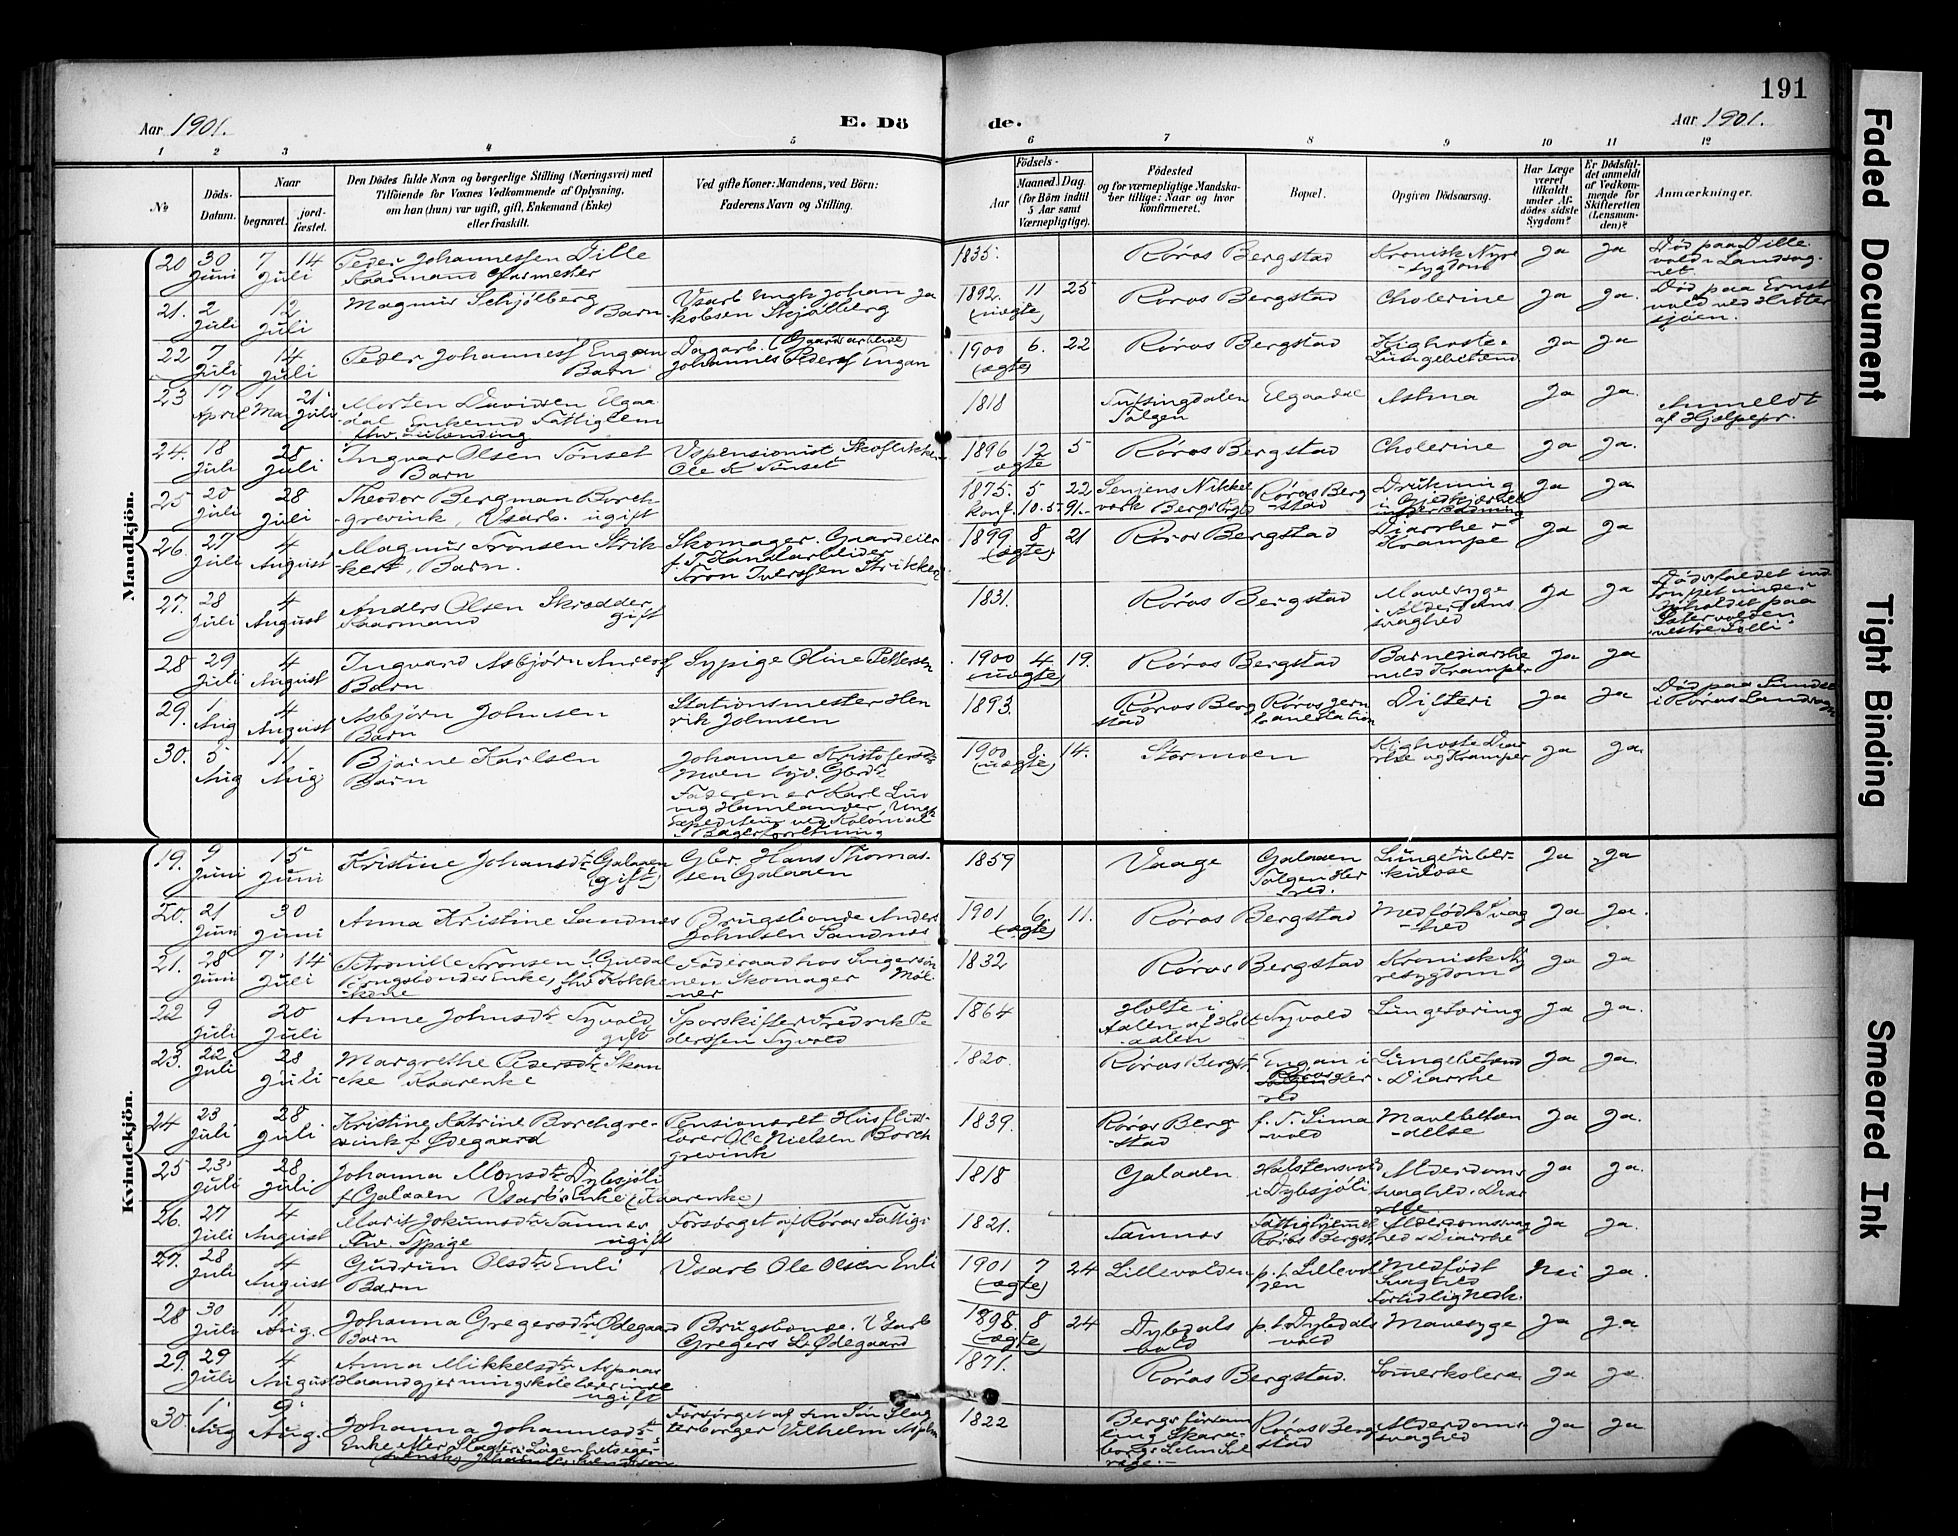 191
Aar 1901.
E. Dö
de.
Aar 1901.
1 2 3 4 5 6 7 8 9 10 11 12
№
Döds-Datum.
Naar
begravet.
jord-fæstet.
Den Dödes fulde Navn og borgerlige Stilling (Næringsvei) med
Tilföiende for Voxnes Vedkommende af Oplysning,
om han (hun) var ugift, gift, Enkemand (Enke)
eller fraskilt.
Ved gifte Koner: Mandens, ved Börn:
Faderens Navn og Stilling.
Födsels-
Aar
Maaned. Dag.
(for Börn indtil
5 Aar samt
Værnepligtige).
Födested
og for værnepligtige Mandska-
ber tillige: Naar og hvor
konfirmeret.
Bopæl.
Opgiven Dödsaarsag.
Har Læge
været
tilkaldt
under Af-
dödes sidste
Sygdom?
Er Dödsfal-
det anmeldt
af Vedkom-
mende for
Skifteretten
(Lensman-
den)?
Anmærkninger.
Mandkjön.
20 30 Juni 7 Juli 14 Peder Johannessen Dille Kaarmand 1835. Røros Bergstad Kronisk Nyre-sygdom Ja Ja Død paa Dille vold i Landsog-net.
21. 2 Juli 12 Juli Magnus Schjølberg Barn Vsarb Ungk Johan Ja-kobsen Skjølberg 1892. 11 25 (uægte) Røros Bergstad Cholerine Ja Ja. Død paa Ernst vold ved Hitter sjøen.
22 7 Juli 14 Juli Peder Johannesf Engan Barn Dagarb. (Gaardsarbeide) Johannes Pedersf Engan 1900 6. 22 (ægte) Røros Bergstad Kighoste Lungebetænd Ja Ja
23 17 April 1 Mai 21 Juli Morten Davidsen Elgaa-dal Enkemd Fattiglem 1818 Tufsingdalen Tolgen Elgaadal Astma Ja Ja. Anmeldt af Hjælpepr.
24. 18 Juli 28 Juli Ingvar Olsen Tønset Barn Vspensionist Skoflikker Ole K Tønset 1896 12 5 ægte Røros Bergstad Cholerine Ja Ja.
25 20 Juli 28 Juli Theodor Bergman Borch-grevink, Vsarb. ugift 1875. 5 22 konf. 10.5-91.- Senjens Nikkel verk Bergsbygd Røros Berg-stad Drukning Ja Ja
26. 27 Juli 4 August Magnus Tronsen Strik-kert, Barn. Skomager. Gaardeier f. T. Handarbeider Tron Iverssen Strikkert 1899 8 21 (ægte) Røros Bergstad Diarrhe Krampe Ja Ja
27. 28 Juli 4 August Anders Olsen Skrædder Kaarmand gift 1831. Røros Bergstad Mavesyge Alderdoms svaghed Ja Ja Dødsfaldet ind-truffet under Ophold paa
28 29 Juli 4 August Ingvard Asbjørn Andersf Barn Sypige Oline Pettersen 1900 4 19. (uægte) Røros Bergstad Barnediarrhe med Kramper Ja Ja
29. 1 Aug 4 August Asbjørn Johnsen Barn Stationsmester Hen rik Johnsen 1893. Røros Berg stad Røros Jern banestation Difteri Ja Ja Død paa Sundet i Røros Landsogn
30. 5 Aug 11 Aug Bjarne Karlsen Barn Johanne Kristofersdtr Moen Faderen er Karl Lud vig Hamlander, Ungk Expeditør ved Kolonial & Bagerforretning 1900 8. 14. (uægte) Stormoen Kighoste Diar rhe og Kramper Ja Ja.
Kvindekjön.
19. 9 Juni 15 Juni Kristine Johansdtr Galaaen (gift) Gbr. Hans Thomas-sen Galaaen 1859 Vaage Galaaen Tolgen Her red. Lungetuber-kulose Ja Ja
20. 21 Juni 30 Juni Anna Kristine Sandnæs Brugsbonde Anders Johnsen Sandnæs 1901 6. 11. (ægte) Røros Bergstad Medfødt Svag-hed Ja Ja.
21. 28 Juni 7 Juli 14 Petronille Tronsen f. Guldal Brugsbondes Enke, Føderaad hos Svigersøn Skomager Møl-ner 1832 Røros Bergstad Kronisk Ny resygdom Ja Ja
22 9 Juli 20 Juli Anne Johnsdtr Syvold gift Sporskifter Fredrik Pe derssen Syvold 1864 Holte i Aalen af Holt aalen Syvold Lungetæring Ja Ja.
23. 22 Juli 28 Juli Margrethe Pedersdtr. Skan cke Kaarenke 1820. Røros Bergst. Engan i Røros Her red Lungebetænd Diarrhe Ja Ja.
24 23 Juli 28 Juli Kristine Katrine Borchgre-vink f Ødegaard Pensioneret Husflids lærer Ole Nielsen Borch grevink 1839. Røros Berg-stad f. T. Lima-vold Mavebetæn-delse Ja Ja
25 23 Juli 28 Juli Johanna Monsdtr. Dybsjøli f Galaaen Vsarbs Enke (Kaarenke) 1818 Galaaen Halstensvold i Dybsjøli Alderdoms svaghed. Diar rhe Ja Ja.
26. 27 Juli 4 August Marit Jokumsdtr. Tamnes ugift Forsørget af Røros Fattigv 1821. Tamnes Fattighjemmet Røros Bergst. Alderdomssvag hed & Diarrhe Ja Ja.
27. 28 Juli 4 August Gudrun Olsdtr Enli Barn Vsarb Ole Olsen Enli 1901 7 24 (ægte) Lillevolden p. t. Lillevol den Medfødt Svaghed Fortidlig Nedk. Nei Ja.
28 30 Juli 11 Aug. Johanna Gregersdtr. Ødegaard Barn Brugsbonde. Vsarb Gregers L. Ødegaard 1898. 8 24 (ægte) Dybdals vold p. t. Dybdals vold Mavesyge Ja Ja
29. 29 Juli 4 August Anna Mikkelsdtr Aspaas Haandgjerningskolelærerinde ugift 1871. Røros Bergstad. Somerkolera Ja Ja.
30. 1 Aug 9 Aug. Johanna Johannesdtr. Enke efter Slagter Forsørget af sin Søn Slag terborger Vilhelm 1822 Bergs forsam ling Skara-borgs Lehn Sve rige.- Røros Berg stad Alderdoms-svaghed Ja Ja
Faded Document
Tight Binding
Smeared Ink